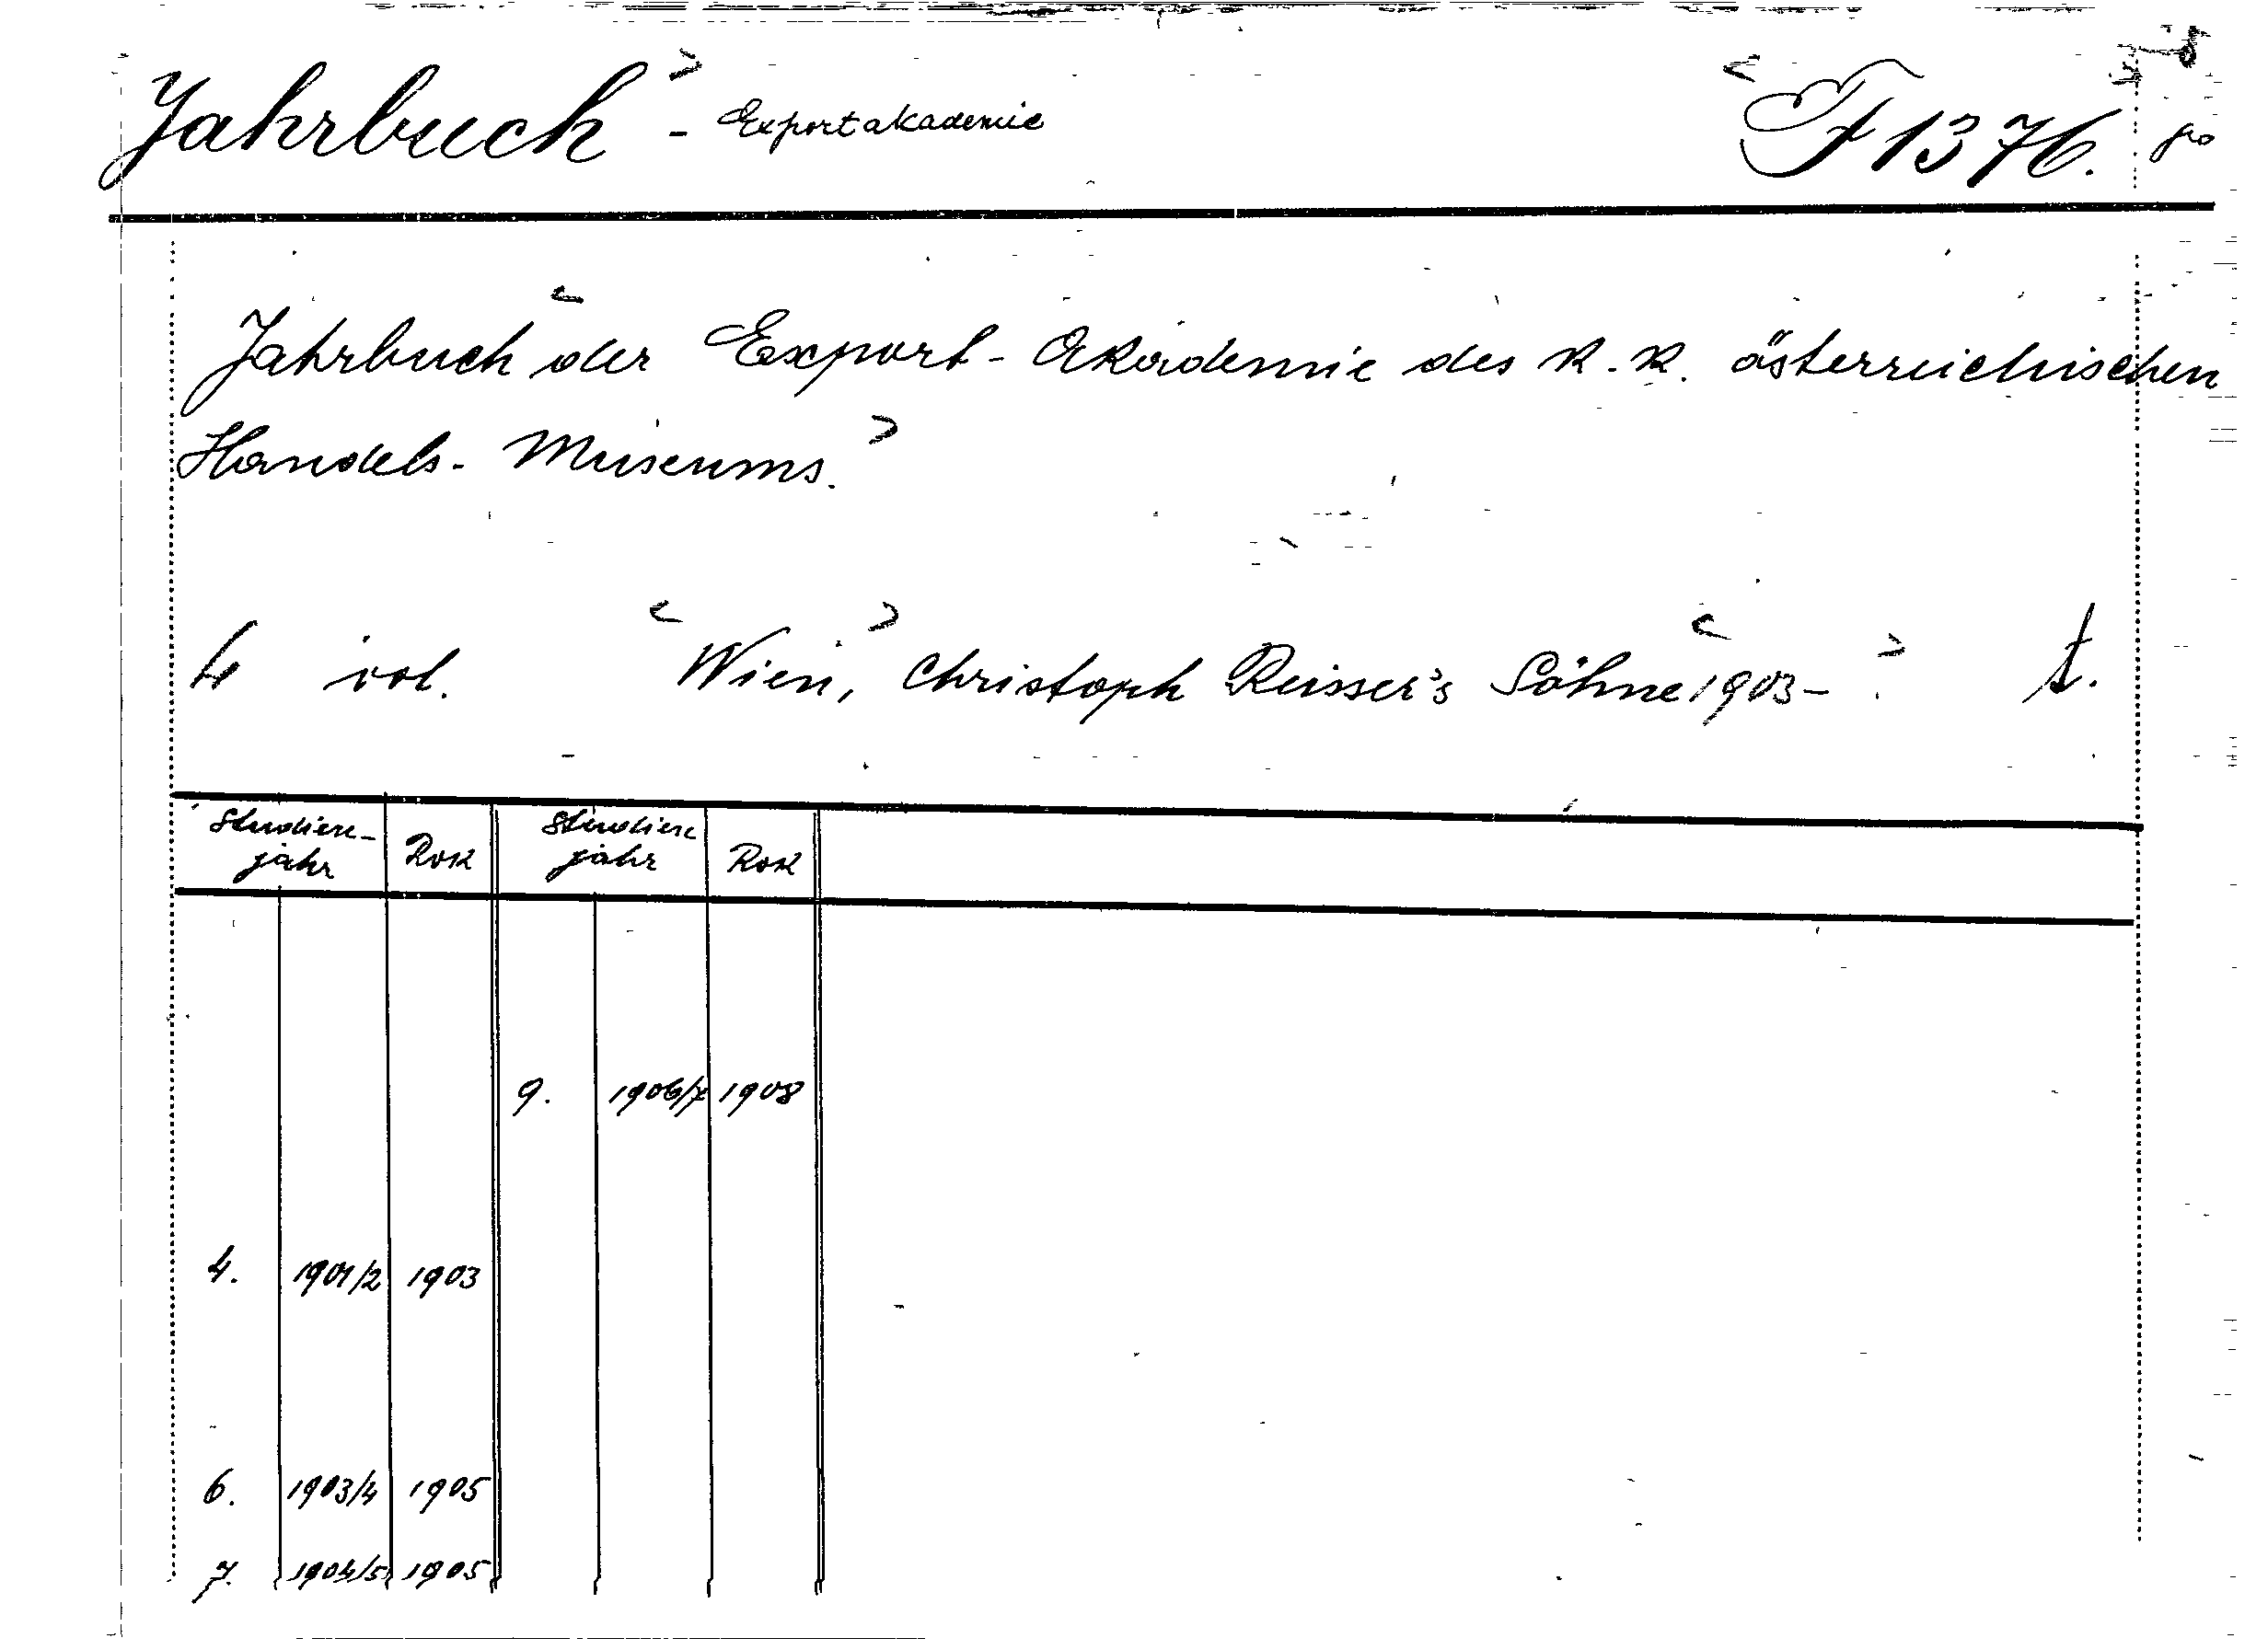 Jahrbuch - Exportakademie F 1376.
Jahrbuch der Export-Akademie des k. k. österreichischen
Handels-Museums.
4 vol. Wien, Christoph Reisser's Söhne 1903- t.
Studien-jahr Rok Studien jahr Rok
9. 1906/7 1908
4. 1901/2 1903
6. 1903/4 1905
7. 1904/5 1905